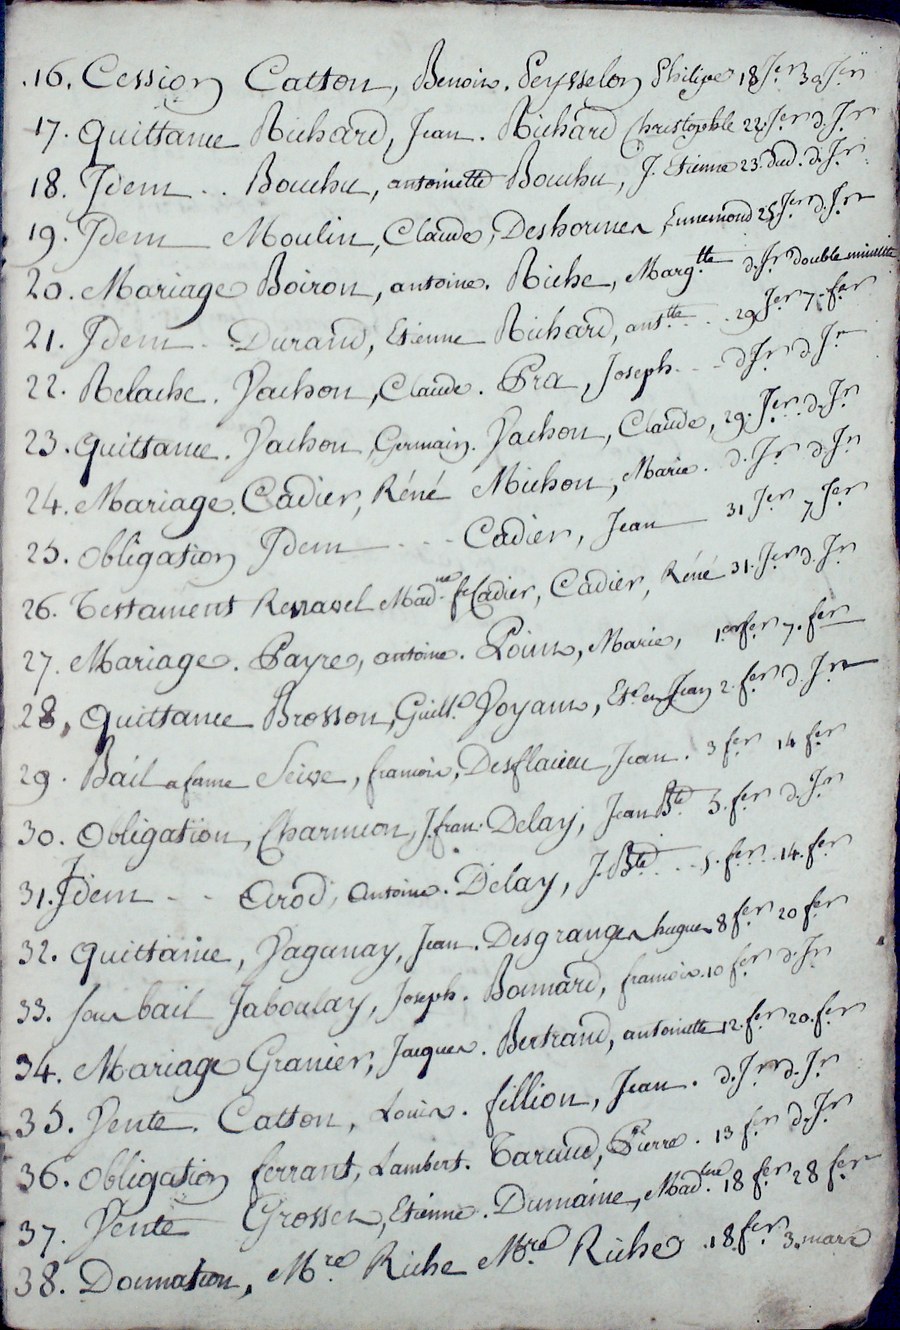 16. Cession Catton, Benoit. Peysselon Philipe 18 Jer 30 Jer
17. Quittance Richard, Jean. Richard Christophle 22. Jer d. Jr
18. Idem .. Bouchu, antoinette Bouchu, J. Etienne 23. dud. d. Jr
19. Idem Moulin, Claude, Deshormes, Ennemond 25 Jer d. Jr
20. Mariage Boiron, antoine. Riche, Marg.tte d. Jr double minutte
21. Idem . Durand, Etienne Richard, antte ... 29 Jer 7. fer
22. Relache. Vachon, Claude. Pra, Joseph ... d Jr d Jr
23. quittance. Vachon, Germain. Vachon, Claude, 29. Jer. d. Jr
24. Mariage. Cadier, Réné Michon, Marie. d. Jr d. Jr
25. Obligation Idem ... Cadier, Jean 31 Jer 7 fer
26. Testament Renavel Mad.ne fe Cadier, Cadier, Réné 31. Jer d. Jr
27. Mariage. Payre, antoine. Marie, 1er fer 7. fer
28. Quittance Brosson, Guill.e en Jean 2. fer d. Jr
29. Bail a fame Seive, francois, Jean. 3 fer 14 fer
30. Obligation, Charmion, J. fran. Delay, Jean Bte 3. fer d. Jr
31. Idem .. Arod, Antoine. Delay, J. Bte .. 5. fer. 14. fer
32. quittance, Vaganay, Jean. Desgranges hugues 8 fer 20 fer
33. sous bail Jaboulay, Joseph. Bonnard, francois. 10 fer d. Jr
34. Mariage Granier, Jacques. Bertrand, antoinette 12. fer 20. fer
35. Vente. Catton, Louis. fillion, Jean. d. Jr d. Jr
36. Obligation ferrant, Lambert. Pierre. 13 fer d. Jr
37. Vente Etienne. Dumaine, Mad.ne 18 fer 28 fer
38. Donnation, Mre Riche Mre Riche. 18. fer 3. mars